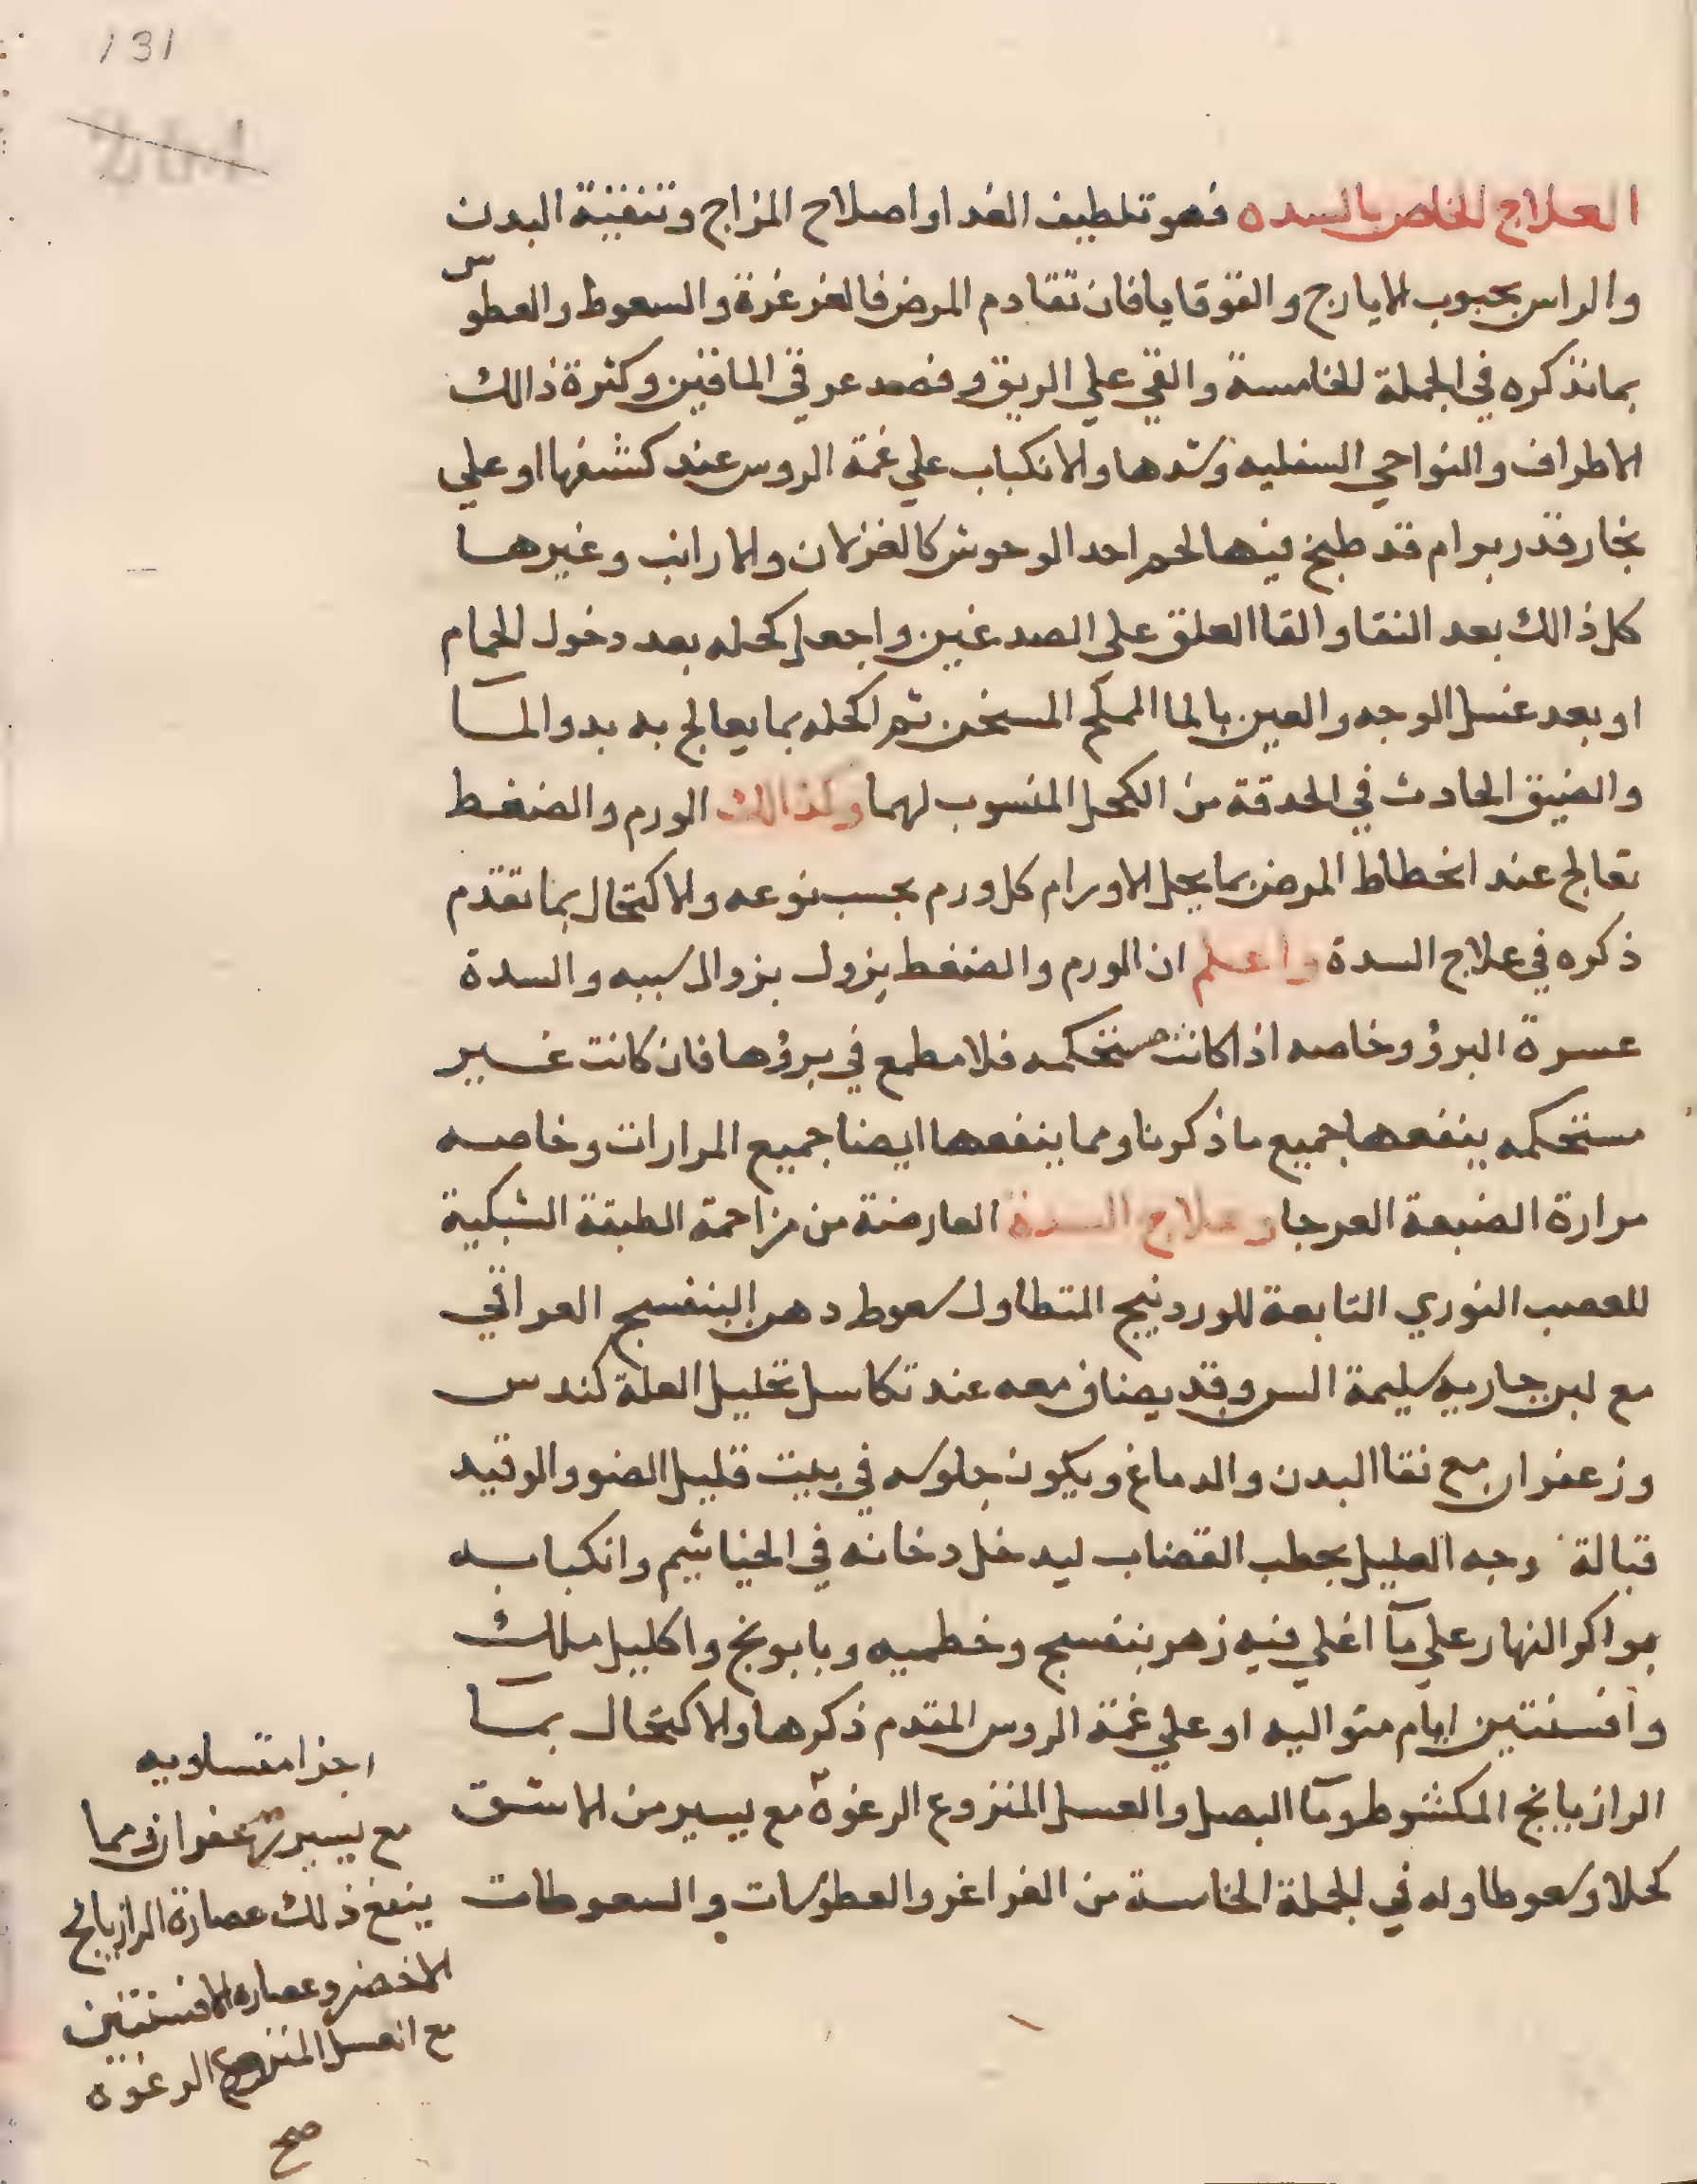 131
العلاج الخاص بالسده فهو تلطيف الغدا واصلاح المزاج وتنقية البدن
والراس بحبوب الايارج والقوقايا فان تقادم المرض فالغرغرة والسعوط والعطوس
بما نذكره في الجملة الخامسة والقي علي الريق وفصد عرقي الماقين وكثرة ذالك
الاطراف والنواحي السفليه وشدها والانكباب علي غمة الروس عند كشفها او علي
بخار قدر برام قد طبخ فيها لحم احد الوحوش كالغزلان والارانب وغيرها
كل ذالك بعد النقا والقا العلق على الصدغين واجعل كحله بعد دخول الحمام
او بعد غسل الوجه والعين بالما المملح المسخن ثم اكحله بما يعالج به بدو المآ
والضيق الحادث في الحدقة من الكحل المنسوب لهما وكذالك الورم والضغط
تعالج عند انحطاط المرض بما يحل الاورام كل ورم بحسب نوعه والاكتحال بما تقدم
ذكره في علاج السدة واعلم ان الورم والضغط يزول بزوال سببه والسدة
عسرة البرؤ وخاصه اذا كانت مستحكمه فلا مطمع في برؤها فان كانت غير
مستحكمه ينفعها جميع ما ذكرنا ومما ينفعها ايضا جميع المرارات وخاصه
مرارة الضبعة العرجا وعلاج السدة العارضة من مزاحمة الطبقة الشبكية
للعصب النوري التابعة للوردينج المتطاول سعوط دهن البنفسج العراقي
مع لبن جاريه سليمة السن وقد يضاف معه عند تكاسل تحليل العلة كندس
وزعفران مع نقا البدن والدماغ ويكون جلوسه في بيت قليل الضو والوقيد
قبالة وجه العليل بحطب القضاب ليدخل دخانه في الخياشيم وانكبابه
بواكر النهار علي مآ اغلي فيه زهر بنفسج وخطميه وبابونج واكليل ملك
وافسنتين ايام متواليه او علي غمة الروس المقدم ذكرها والاكتحال بمآ
الرازيانج المكشوط ومآ البصل والعسل المنزوع الرغوة مع يسير من الاشق
كحلا وسعوطا وله في الجملة الخامسة من الغراغر والعطوسات والسعوطات
اجزا متساويه
مع يسير زعفران ومما
ينفع ذلك عصارة الرازيانج
الاخضر وعصاره الافسنتين
مع العسل المنزوع الرغوة
صح